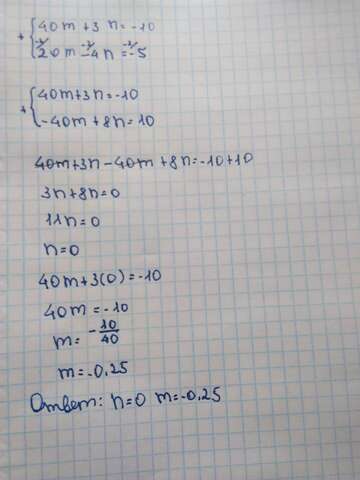 + { 40m + 3n = -10
-2/ 20m -2/ -4n -2/ = -5
+ { 40m+3n=-10
-40m + 8n = 10
40m+3n-40m+8n=-10+10
3n+8n=0
11n=0
n=0
40m+3(0)=-10
40m=-10
m=-10/40
m=-0,25
Ответ: n=0 m=-0,25